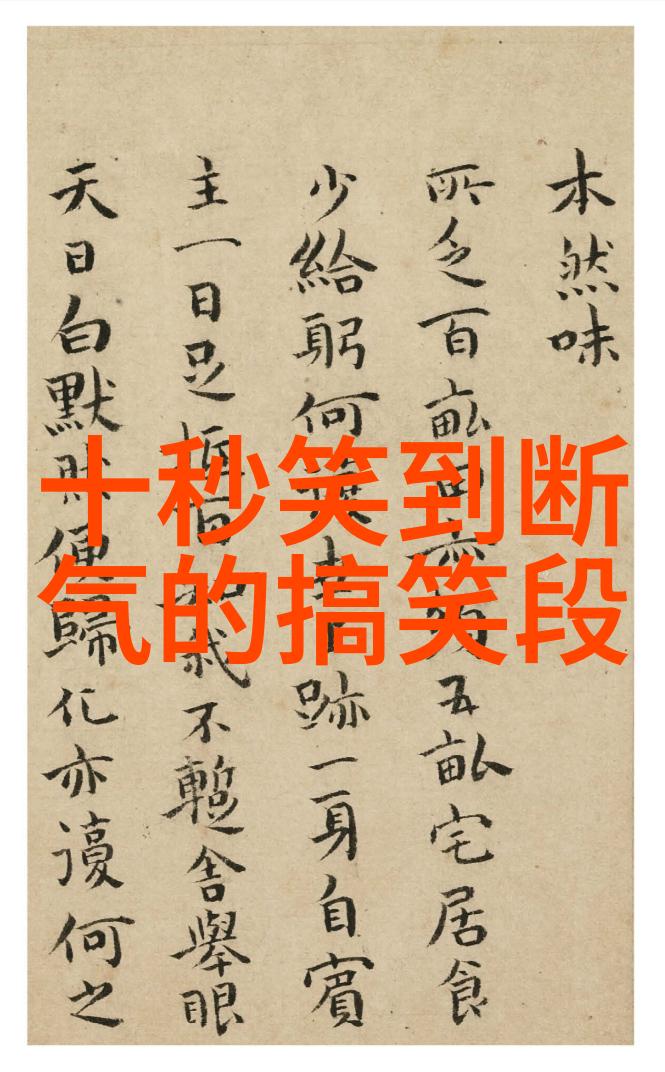 十秒笑到断
气的搞笑段
本然味
所乏百畝田五畝宅居食
少給躬何跡一身自賓
主一日足我不暫舍舉眼
天日白默然便歸化亦謾何之